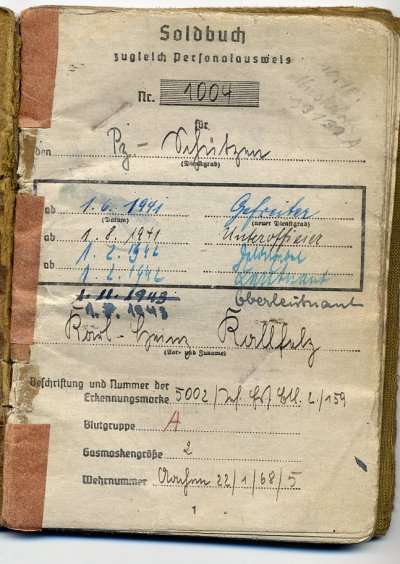 Soldbuch
zugleich Personalausweis
Nr. 1004
für
den Pz-Schützen
(Dienstgrad)
ab 1.6.1941 Gefreiter
(Datum) (neuer Dienstgrad)
ab 1.8.1941 Unteroffizier
ab 1.2.1942 Feldwebel
1.2.1942 Leutnant
1.11.1943 Oberleutnant
1.7.1943
Karl-Heinz Kallfelz
(Vor- und Zuname)
Beschriftung und Nummer der
Erkennungsmarke 5002/Inf. Ers. Btl. 2./159
Blutgruppe A
Gasmaskengröße 2
Wehrnummer Aachen 22/1/68/5
1